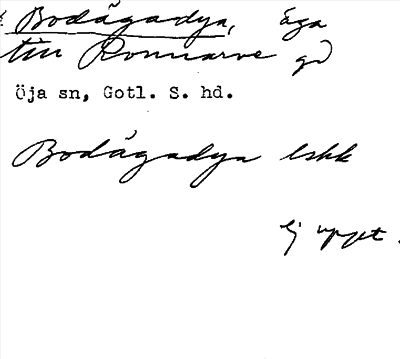 Bodågadya, äga
till Ronnarve gd
Öja sn, Gotl. S. hd.
Bodågadya lshk
Ej uppt.